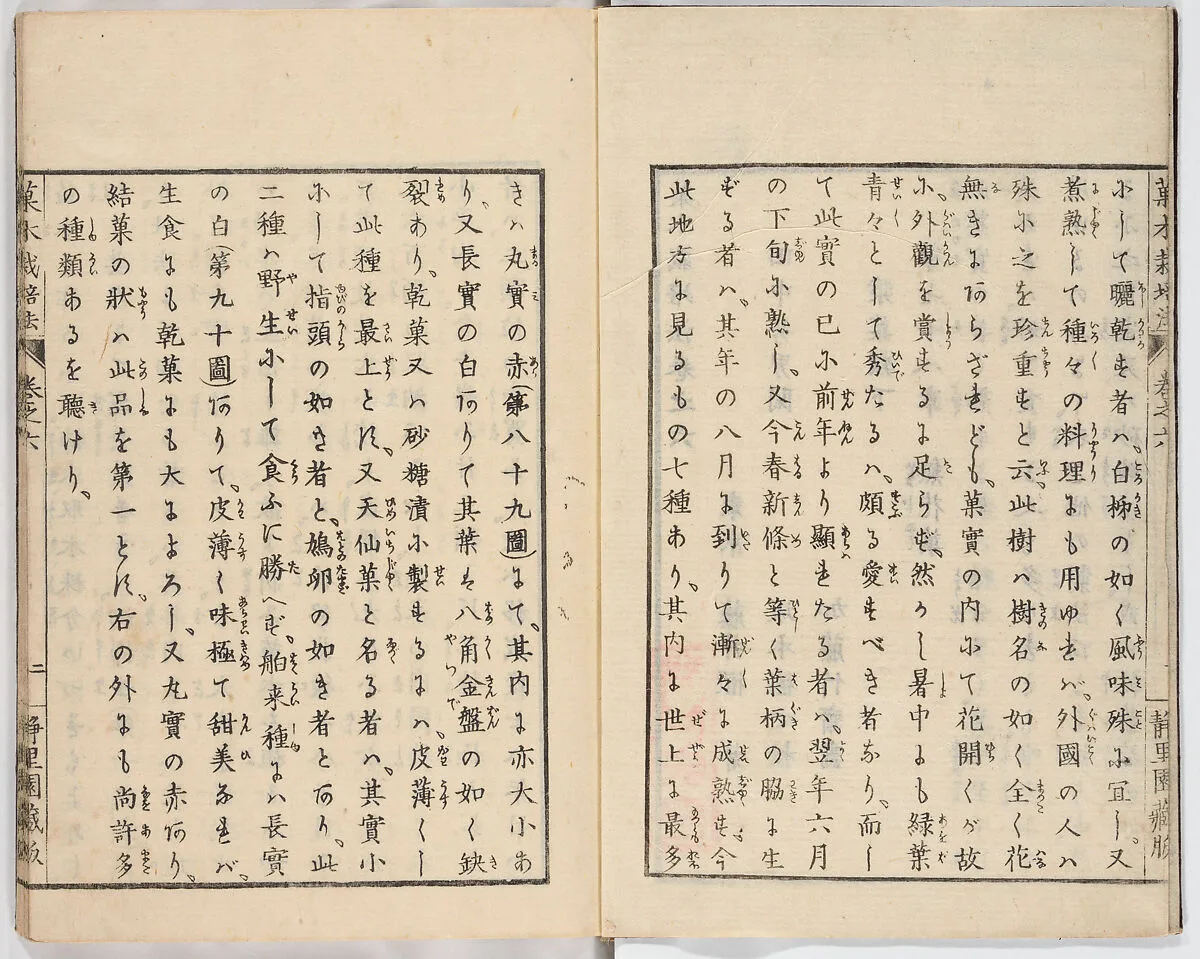 菓木栽培法 卷之六 静里園藏版
にして曬乾す者ハ、白柹の如く風味殊に宜し、又
煮熟して種々の料理にも用ゆれバ、外國の人ハ
殊に之を珍重すと云、此樹ハ樹名の如く全く花
無きにハあらざれども、菓實の内にて花開くが故
に、外觀を賞するに足らず、然かし暑中にも緑葉
青々として秀たるハ、頗る愛すべき者なり、而し
て此實の已に前年より顯れたる者ハ、翌年六月
の下旬に熟し、又今春新條と等く葉柄の脇に生
ずる者ハ、其年の八月に到りて漸々に成熟す、今
此地方に見るもの七種あり、其内に世上に最多
きハ丸實の赤(第八十九圖)にて、其内に亦大小あ
り、又長實の白ありて其葉は八角金盤の如く缺
裂あり、乾菓又ハ砂糖漬に製するにハ、皮薄くし
て此種を最上とす、又天仙菓と名る者ハ、其實小
にして指頭の如き者と、鳩卵の如き者とあり、此
二種ハ野生にして食ふに勝へず、舶来種にハ長實
の白(第九十圖)ありて、皮薄く味極て甜美なれバ、
生食にも乾菓にも大によろし、又丸實の赤あり、
結菓の狀ハ此品を第一とす、右の外にも尚許多
の種類あるを聽けり、
菓木栽培法 卷之六 二 静里園藏版